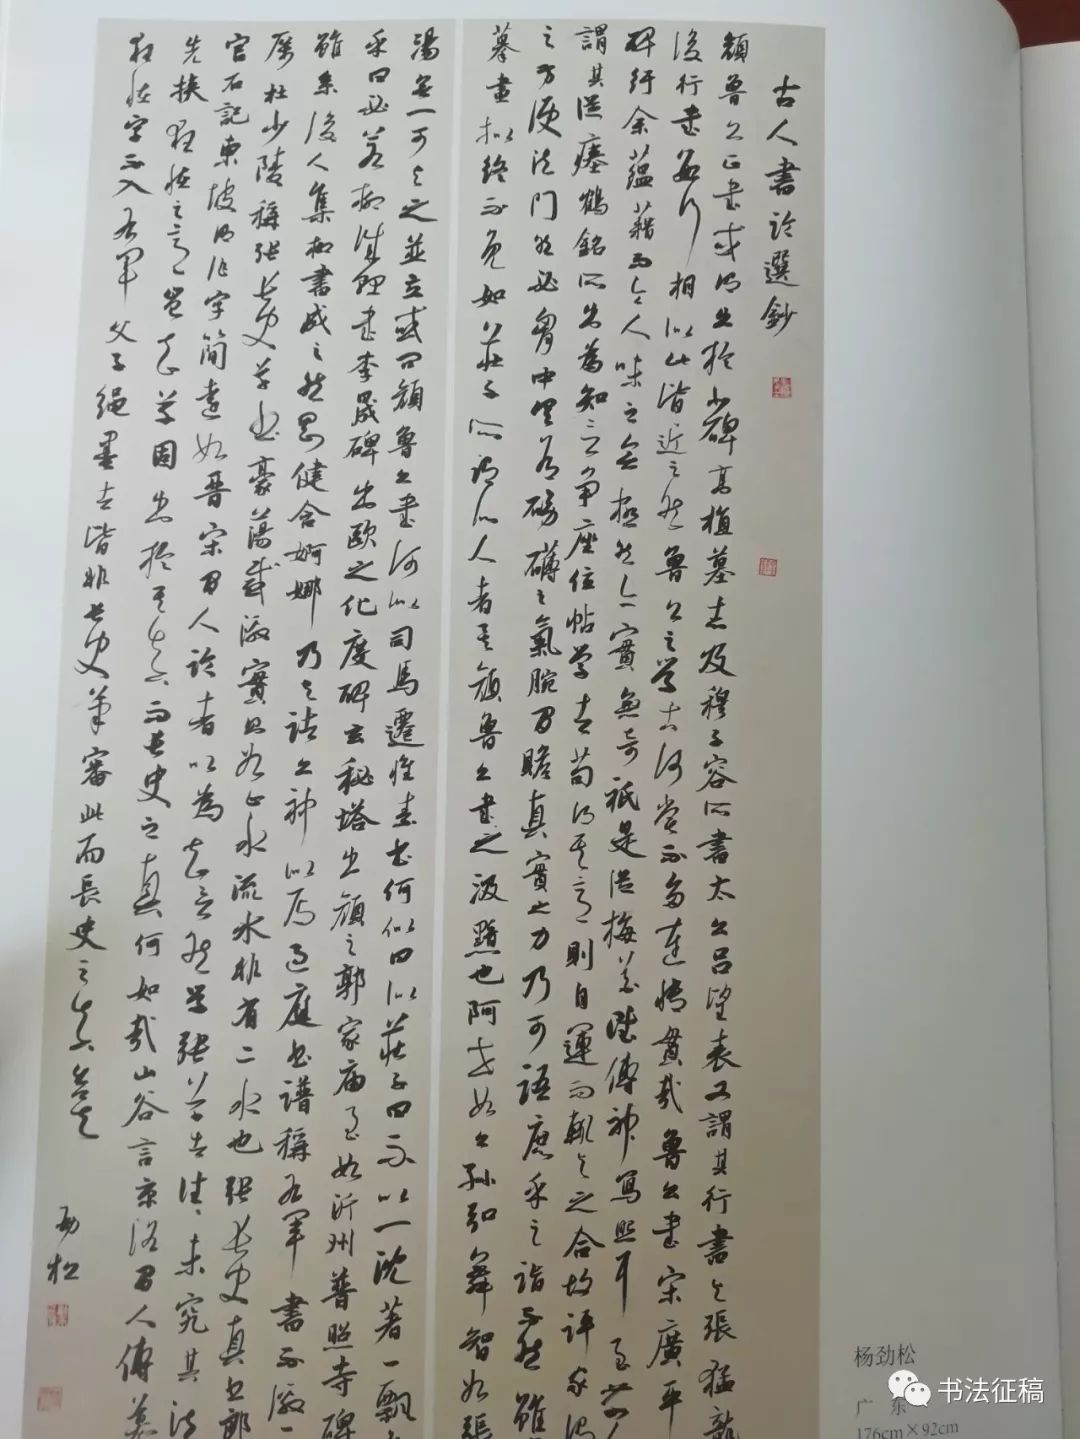 古人書論選鈔
顏魯公正書或謂出於北碑高植墓志及穆子容所書太公呂望表又謂其行書與張猛龍
後行書數行相似此皆近之然魯公之學古何嘗不多連博貫哉魯公書宋廣平
碑紆余蘊藉令人味之無極然亦實無奇祇是從梅花賦傳神寫照耳至前人
謂其從瘞鶴銘出為知言爭座位帖學者苟得其意則自運而輒與之合故評家謂
之方便法門然必胸中具磅礴之氣腕間贍真實之力乃可語庶乎之詣不然雖
摹畫擬終不免如莊子所謂似人者矣顏魯公書之汲黯也阿世如公孫弘舞智如張
湯無一可與之並立或問顏魯公書何似司馬遷懷素書何似曰似莊子曰不以一沈著一飄
乎曰必若柳誠懸書李晟碑出歐之化度碑玄秘塔出顏之郭家廟至如沂州普照寺碑
雖系後人集柳書成之然剛健含婀娜乃與誠公神似焉過庭書譜稱右軍書不激
厲杜少陵稱張長史草書豪蕩感激實則如止水流水非有二水也張長史真書郎
官石記東坡謂作字簡遠如晉宋間人論者以為知言然學張草者往往未究其法
先挾狂怪之意豈知草固出於其真而長史之真何如哉山谷言京洛間人傳摹
狂怪字不入右軍父子繩墨者皆非長史筆審此而長史之真出矣
勁松
杨劲松
广 东
176cm×92cm
书法征稿